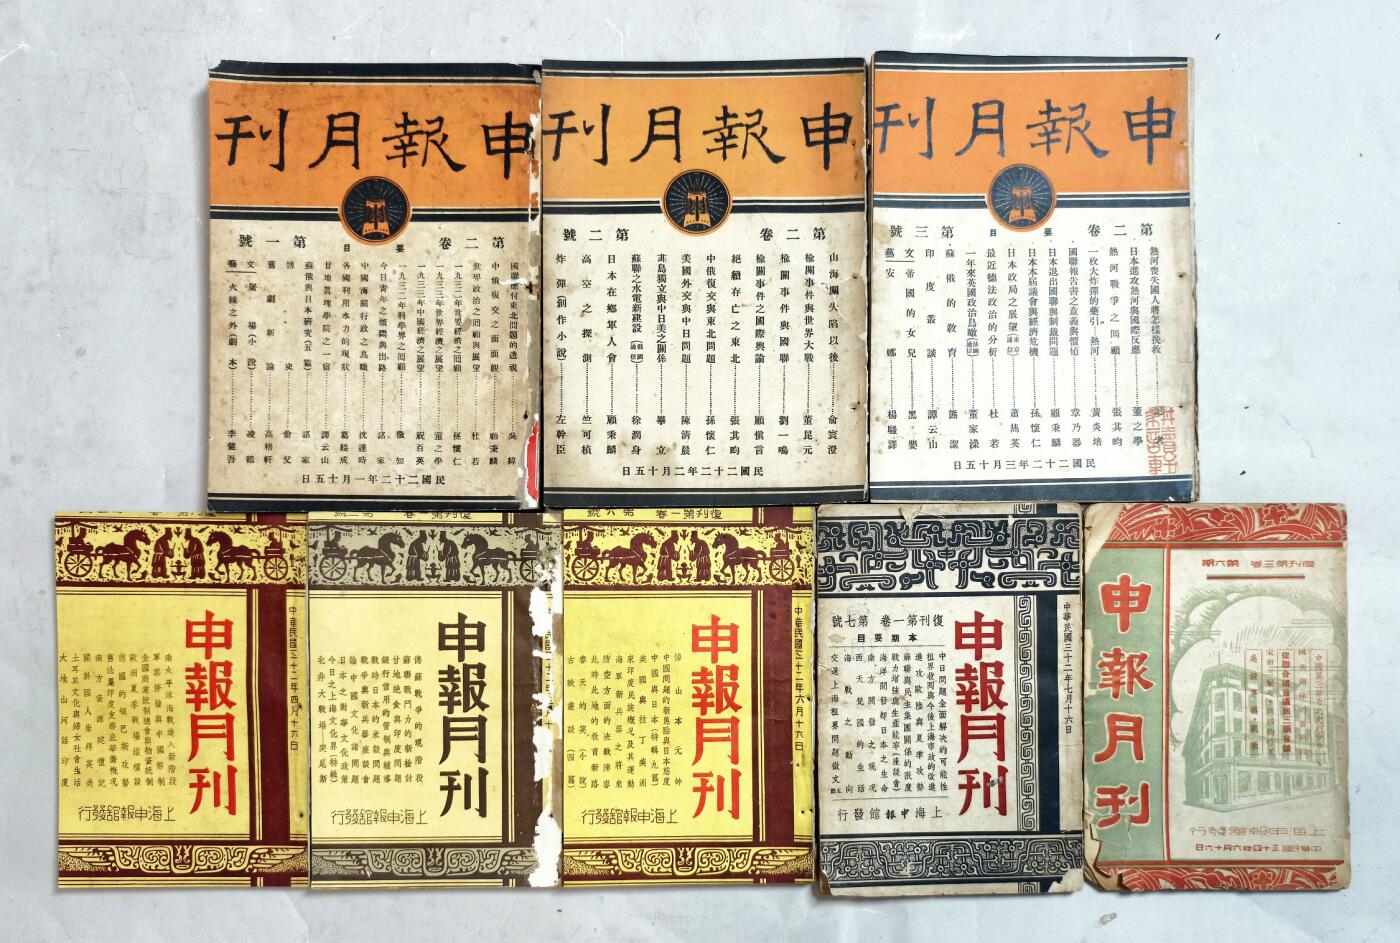 申報月刊
第二卷 第一號
要目
國聯應付東北問題的透視 吳
中俄復交之面面觀 顧秉麟
世界政治之回顧與展望 杜若
一九三二年世界經濟之回顧 孫懷仁
一九三二年中國經濟之展望 董之學 祝百英
一九三二年科學界之回顧 微知
今日青年之煩悶與出路 諸家
中國海關行政之鳥瞰 沈達時
各國利用水力的現狀 葛綏成
甘地眞理學院之一宿 譚云山
蘇俄與日本研究(五篇) 諸家
愽史 愉父
舊劇新論 高梧軒
文藝
屠場(小說) 凌鶴
火線之外(劇本) 李健吾
民國二十二年一月十五日
申報月刊
第二卷 第二號
山海關失陷以後 俞寰澄
榆關事件與世界大戰 董昆元
榆關事件與國聯 劉一鳴
榆關事件之國際輿論 顧慎言
絕續存亡之東北 張其昀
中俄復交與東北問題 孫懷仁
美國外交與中日問題 陳清晨
菲島獨立與中日美之關係 畢立
蘇聯之水電新建設 徐潤身
日本在鄉軍人會 顧秉麟
高空之探測 竺可楨
炸彈(創作小說) 左幹臣
民國二十二年二月十五日
申報月刊
第二卷 第三號
要目
熱河喪失國人將怎樣挽救 記者
日本進攻熱河與國際反應 董之學
熱河戰爭之回顧 張其昀
一枚大炸彈的藥引——熱河 黃炎培
國聯報告書之意義與價值 章乃器
日本退出國聯與制裁問題 顧秉麟
日本本屆議會與經濟危機 孫懷仁
日本政局之展望 蕭雋英
最近德法政治的分析 杜若
一年來英國政治鳥瞰 董家溁
蘇俄的敎育 熊潔
印度叢談 譚云山
文藝
帝國的女兒 黑嬰
安娜 楊騷譯
民國二十二年三月十五日
復刊第一卷
申報月刊
中華民國三十二年四月十六日
南太平洋海戰進入新階段
軍票停發與中國幣制
全國商業統制總會與物資統制
歐洲夏季戰場縱橫談
德國的領巴斯攻勢
舊法屬印度支那些華僑概況
南方資源建設禮記
關於國人崇拜英美
土耳其文化與婦女社會生活
大地山河話印度
上海申報館發行
復刊第一卷
申報月刊
德蘇戰爭的現階段
蘇聯戰鬥力的新檢討
甘地絕食與印度問題
銀行信用的管制與輔導
戰時日本的米穀問題
科學與武器座談會
論中國文化諸問題
日本之對華文化政策
今日之上海文化界(特輯)
北非大戰場——突尼斯
上海申報館發行
復刊第一卷 第六號
申報月刊
中華民國三十二年六月十六日
悼山本元帥
中國問題的新焦點與日本態度
中國與日本(特輯九篇)
美帝國主義往丁美洲
東印度民族概況及其運動
海軍新兵器之將來
防空方面的決戰陣容
此時此地的敎育新路
春天的哭(小說)
古歟談(四篇)
上海申報館發行
復刊第一卷 第七號
申報月刊
中華民國三十二年七月十六日
本期要目
中日問題全面解决的可能性
租界收囘與今後上海市政的改進
進攻歐陸與夏季攻勢
蘇聯與民主集團關係的限度
戰力增強與生產能率(座談會)
海洋開發與日本之生命
南方開發之現況
西尾覺國的生活
海戰之動向
交還上海租界問題徵文
上海申報館發行
復刊第三卷 第六期
申報月刊
上海申報館發行
中華民國三十四年六月十六日